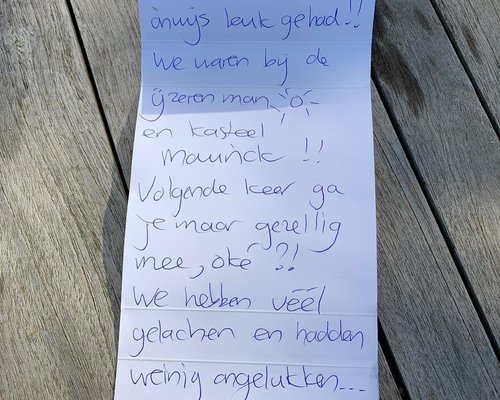 onwijs leuk gehad!!
we waren bij de
ijzeren man
en kasteel
maurick !!
Volgende keer ga
je maar gezellig
mee, oké ?!
we hebben véél
gelachen en hadden
weinig ongelukken...